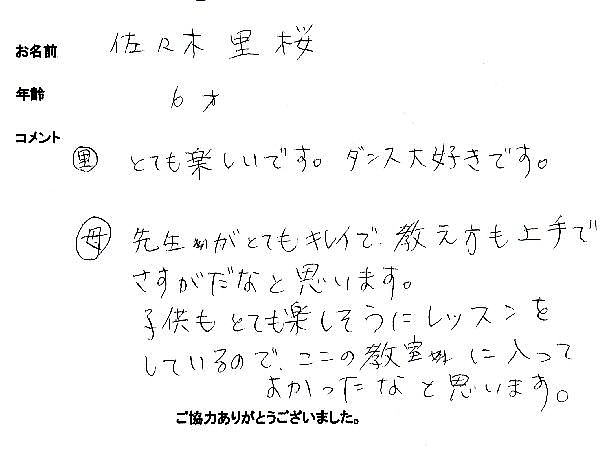 お名前 佐々木里桜
年齢 6才
コメント
里 とても楽しいです。ダンス大好きです。
母 先生がとてもキレイで、教え方も上手で
さすがだなと思います。
子供もとても楽しそうにレッスンを
しているので、ここの教室に入って
よかったなと思います。
ご協力ありがとうございました。